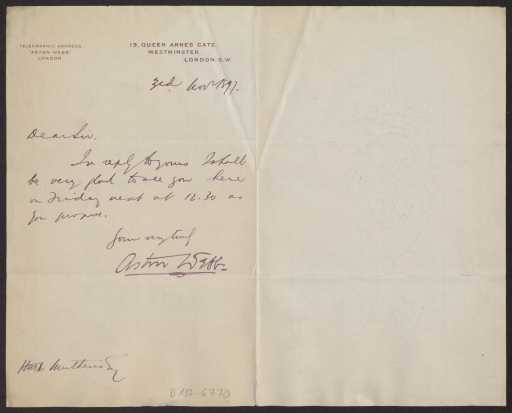 TELEGRAPHIC ADDRESS
"ASTON WEBB"
LONDON
19, QUEEN ANNES GATE,
WESTMINSTER,
LONDON S.W.
3rd Novr 1897.
Dear Sir.
In reply to yours I shall
be very glad to see you here
on Friday next at 12.30 as
you propose.
Yours very truly
Aston Webb
Herr Muthesius
D 102-6770